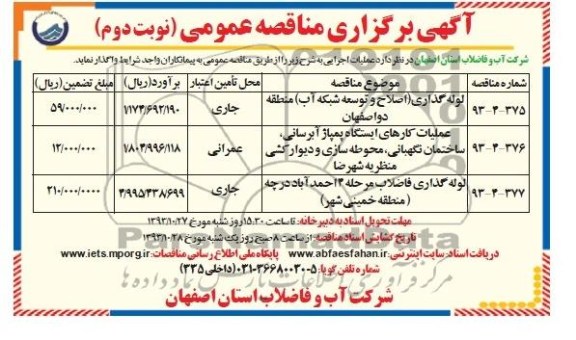 آگهی برگزاری مناقصه عمومی (نوبت دوم)
شرکت آب و فاضلاب استان اصفهان در نظر دارد عملیات اجرایی به شرح زیر را از طریق مناقصه عمومی به پیمانکاران واجد شرایط واگذار نماید.
شماره مناقصه موضوع مناقصه محل تأمین اعتبار برآورد(ریال) مبلغ تضمین (ریال)
۹۳-۴-۳۷۵ لوله گذاری(اصلاح و توسعه شبکه آب) منطقه دو اصفهان جاری ۱۱۷۴/۶۹۲/۱۹۰ ۵۹/۰۰۰/۰۰۰
۹۳-۴-۳۷۶ عملیات کارهای ایستگاه پمپاژ آبرسانی، ساختمان نگهبانی، محوطه سازی و دیوارکشی منظریه شهرضا عمرانی ۱۸۰۴/۹۹۶/۱۱۸ ۱۲/۰۰۰/۰۰۰
۹۳-۴-۳۷۷ لوله گذاری فاضلاب مرحله ۱۴ احمد آباد درچه (منطقه خمینی شهر) جاری ۴/۹۹۵۴۳۸/۶۹۹ ۲۱۰/۰۰۰/۰۰۰۰
مهلت تحویل اسناد به دبیرخانه: تا ساعت ۱۵:۳۰ روز شنبه مورخ ۱۳۹۳/۱۰/۲۷
تاریخ گشایش اسناد مناقصه: از ساعت ۸ صبح روز یک شنبه مورخ ۱۳۹۳/۱۰/۲۸
دریافت اسناد، سایت اینترنتی: www.abfaesfahan.ir پایگاه ملی اطلاع رسانی مناقصات: www.iets.mporg.ir
شماره تلفن گویا: ۵-۳۶۶۸۰۰۳۰-۰۳۱ (داخلی ۳۳۵)
شرکت آب و فاضلاب استان اصفهان